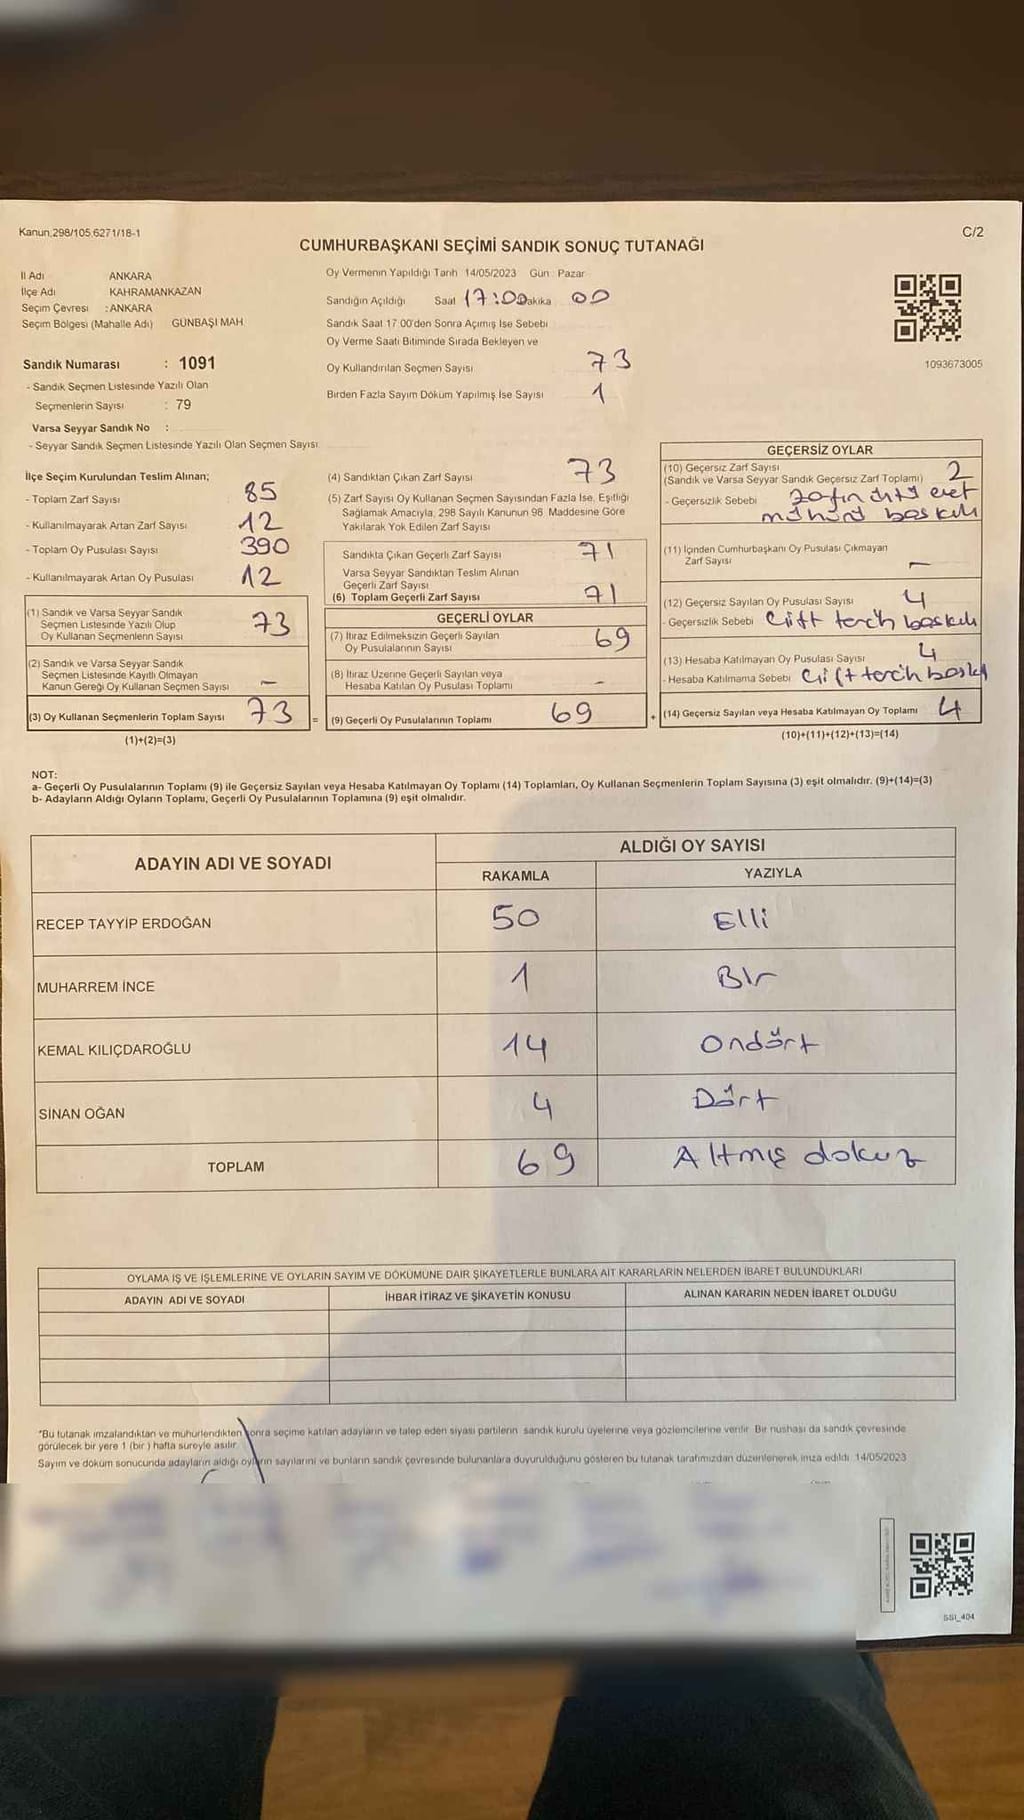 Kanun,298/105,6271/18-1
C/2
CUMHURBAŞKANI SEÇİMİ SANDIK SONUÇ TUTANAĞI
İl Adı ANKARA
İlçe Adı KAHRAMANKAZAN
Seçim Çevresi : ANKARA
Seçim Bölgesi (Mahalle Adı) GÜNBAŞI MAH
Sandık Numarası : 1091
- Sandık Seçmen Listesinde Yazılı Olan
Seçmenlerin Sayısı : 79
Varsa Seyyar Sandık No :
- Seyyar Sandık Seçmen Listesinde Yazılı Olan Seçmen Sayısı
Oy Vermenin Yapıldığı Tarih 14/05/2023 Gün : Pazar
Sandığın Açıldığı Saat 17:00 Dakika 00
Sandık Saat 17.00'den Sonra Açımış İse Sebebi
Oy Verme Saati Bitiminde Sırada Bekleyen ve
Oy Kullandırılan Seçmen Sayısı 73
Birden Fazla Sayım Döküm Yapılmış İse Sayısı 1
1093673005
İlçe Seçim Kurulundan Teslim Alınan;
- Toplam Zarf Sayısı 85
- Kullanılmayarak Artan Zarf Sayısı 12
- Toplam Oy Pusulası Sayısı 390
- Kullanılmayarak Artan Oy Pusulası 12
(1) Sandık ve Varsa Seyyar Sandık
Seçmen Listesinde Yazılı Olup
Oy Kullanan Seçmenlerin Sayısı 73
(2) Sandık ve Varsa Seyyar Sandık
Seçmen Listesinde Kayıtlı Olmayan
Kanun Gereği Oy Kullanan Seçmen Sayısı –
(3) Oy Kullanan Seçmenlerin Toplam Sayısı 73 =
(1)+(2)=(3)
(4) Sandıktan Çıkan Zarf Sayısı 73
(5) Zarf Sayısı Oy Kullanan Seçmen Sayısından Fazla İse, Eşitliği
Sağlamak Amacıyla, 298 Sayılı Kanunun 98. Maddesine Göre
Yakılarak Yok Edilen Zarf Sayısı
Sandıkta Çıkan Geçerli Zarf Sayısı 71
Varsa Seyyar Sandıktan Teslim Alınan
Geçerli Zarf Sayısı
(6) Toplam Geçerli Zarf Sayısı 71
GEÇERLİ OYLAR
(7) İtiraz Edilmeksizin Geçerli Sayılan
Oy Pusulalarının Sayısı 69
(8) İtiraz Üzerine Geçerli Sayılan veya
Hesaba Katılan Oy Pusulası Toplamı –
(9) Geçerli Oy Pusulalarının Toplamı 69 +
GEÇERSİZ OYLAR
(10) Geçersiz Zarf Sayısı 2
(Sandık ve Varsa Seyyar Sandık Geçersiz Zarf Toplamı)
- Geçersizlik Sebebi zarfın üstü evet
mührü baskılı
(11) İçinden Cumhurbaşkanı Oy Pusulası Çıkmayan
Zarf Sayısı –
(12) Geçersiz Sayılan Oy Pusulası Sayısı 4
- Geçersizlik Sebebi Çift tercih baskılı
(13) Hesaba Katılmayan Oy Pusulası Sayısı 4
- Hesaba Katılmama Sebebi Çift tercih baskı
(14) Geçersiz Sayılan veya Hesaba Katılmayan Oy Toplamı 4
(10)+(11)+(12)+(13)=(14)
NOT:
a- Geçerli Oy Pusulalarının Toplamı (9) ile Geçersiz Sayılan veya Hesaba Katılmayan Oy Toplamı (14) Toplamları, Oy Kullanan Seçmenlerin Toplam Sayısına (3) eşit olmalıdır. (9)+(14)=(3)
b- Adayların Aldığı Oyların Toplamı, Geçerli Oy Pusulalarının Toplamına (9) eşit olmalıdır.
ADAYIN ADI VE SOYADI
ALDIĞI OY SAYISI
RAKAMLA YAZIYLA
RECEP TAYYİP ERDOĞAN 50 Elli
MUHARREM İNCE 1 Bir
KEMAL KILIÇDAROĞLU 14 Ondört
SİNAN OĞAN 4 Dört
TOPLAM 69 Altmış dokuz
OYLAMA İŞ VE İŞLEMLERİNE VE OYLARIN SAYIM VE DÖKÜMÜNE DAİR ŞİKAYETLERLE BUNLARA AİT KARARLARIN NELERDEN İBARET BULUNDUKLARI
ADAYIN ADI VE SOYADI İHBAR İTİRAZ VE ŞİKAYETİN KONUSU ALINAN KARARIN NEDEN İBARET OLDUĞU
*Bu tutanak imzalandıktan ve mühürlendikten sonra seçime katılan adayların ve talep eden siyasi partilerin sandık kurulu üyelerine veya gözlemcilerine verilir. Bir nüshası da sandık çevresinde
görülecek bir yere 1 (bir) hafta süreyle asılır.
Sayım ve döküm sonucunda adayların aldığı oyların sayılarını ve bunların sandık çevresinde bulunanlara duyurulduğunu gösteren bu tutanak tarafımızdan düzenlenerek imza edildi. 14/05/2023
SSI_404